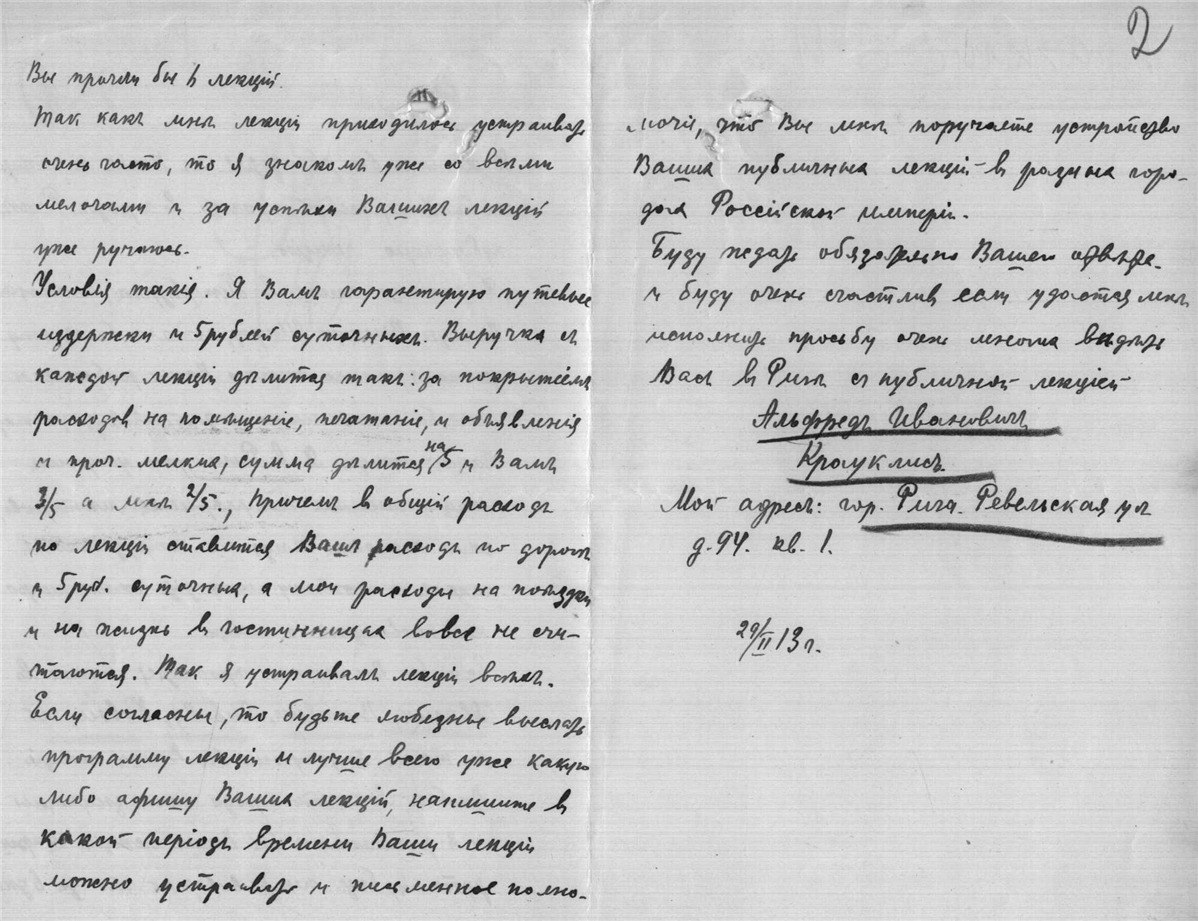 2
Вы прочли бы 6 лекцій.
Такъ какъ мнѣ лекціи приходилось устраивать
очень часто, то я знакомъ уже со всѣми
мелочами и за успѣхи Вашихъ лекцій
уже ручаюсь.
Условія такія. Я Вамъ гарантирую путевые
издержки и 5 рублей суточныхъ. Выручка съ
каждой лекціи дѣлится такъ: за покрытіемъ
расходов на помѣщеніе, печатаніе, и объявленія
и проч. мелкіа, сумма дѣлится на 5 и Вамъ
3/5 а мнѣ 2/5., Причемъ в общій расходъ
по лекціи ставится Вашъ расходъ по дорогѣ
и 5 руб. суточныа, а мои расходы на поѣздки
и на жизнь в гостинницаа вовсе не счи-
таются. Такъ я устраивалъ лекціи всѣмъ.
Если согласны, то будьте любезны выслать
программу лекціи и лучше всего уже какую
либо афишу Вашиа лекцій, напишите в
какой періодъ времени Ваши лекціи
можно устраивать и письменное полно-
мочіе, что Вы мнѣ поручаете устройство
Вашиа публичныа лекцій в разныа горо-
даа Россійской имперіи.
Буду ждать обязательно Вашего отвѣта
и буду очень счастлив если удастся мнѣ
исполнить просьбу очень многиа видѣть
Васъ в Ригѣ съ публичной лекціей
Альфредъ Ивановичъ
Крауклисъ.
Мой адресъ: гор. Рига. Ревельская ул
д. 94. кв. 1.
29/II 13 г.